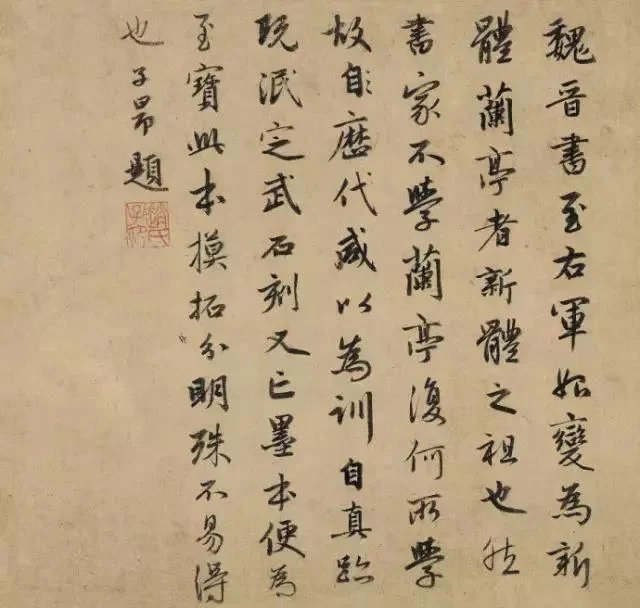 魏晉書至右軍始變為新
體蘭亭者新體之祖也然
書家不學蘭亭復何所學
故自歷代咸以為訓自真跡
既泯定武石刻又亡墨本便為
至寶此本摸拓分明殊不易得
也子昂題
趙氏子昂